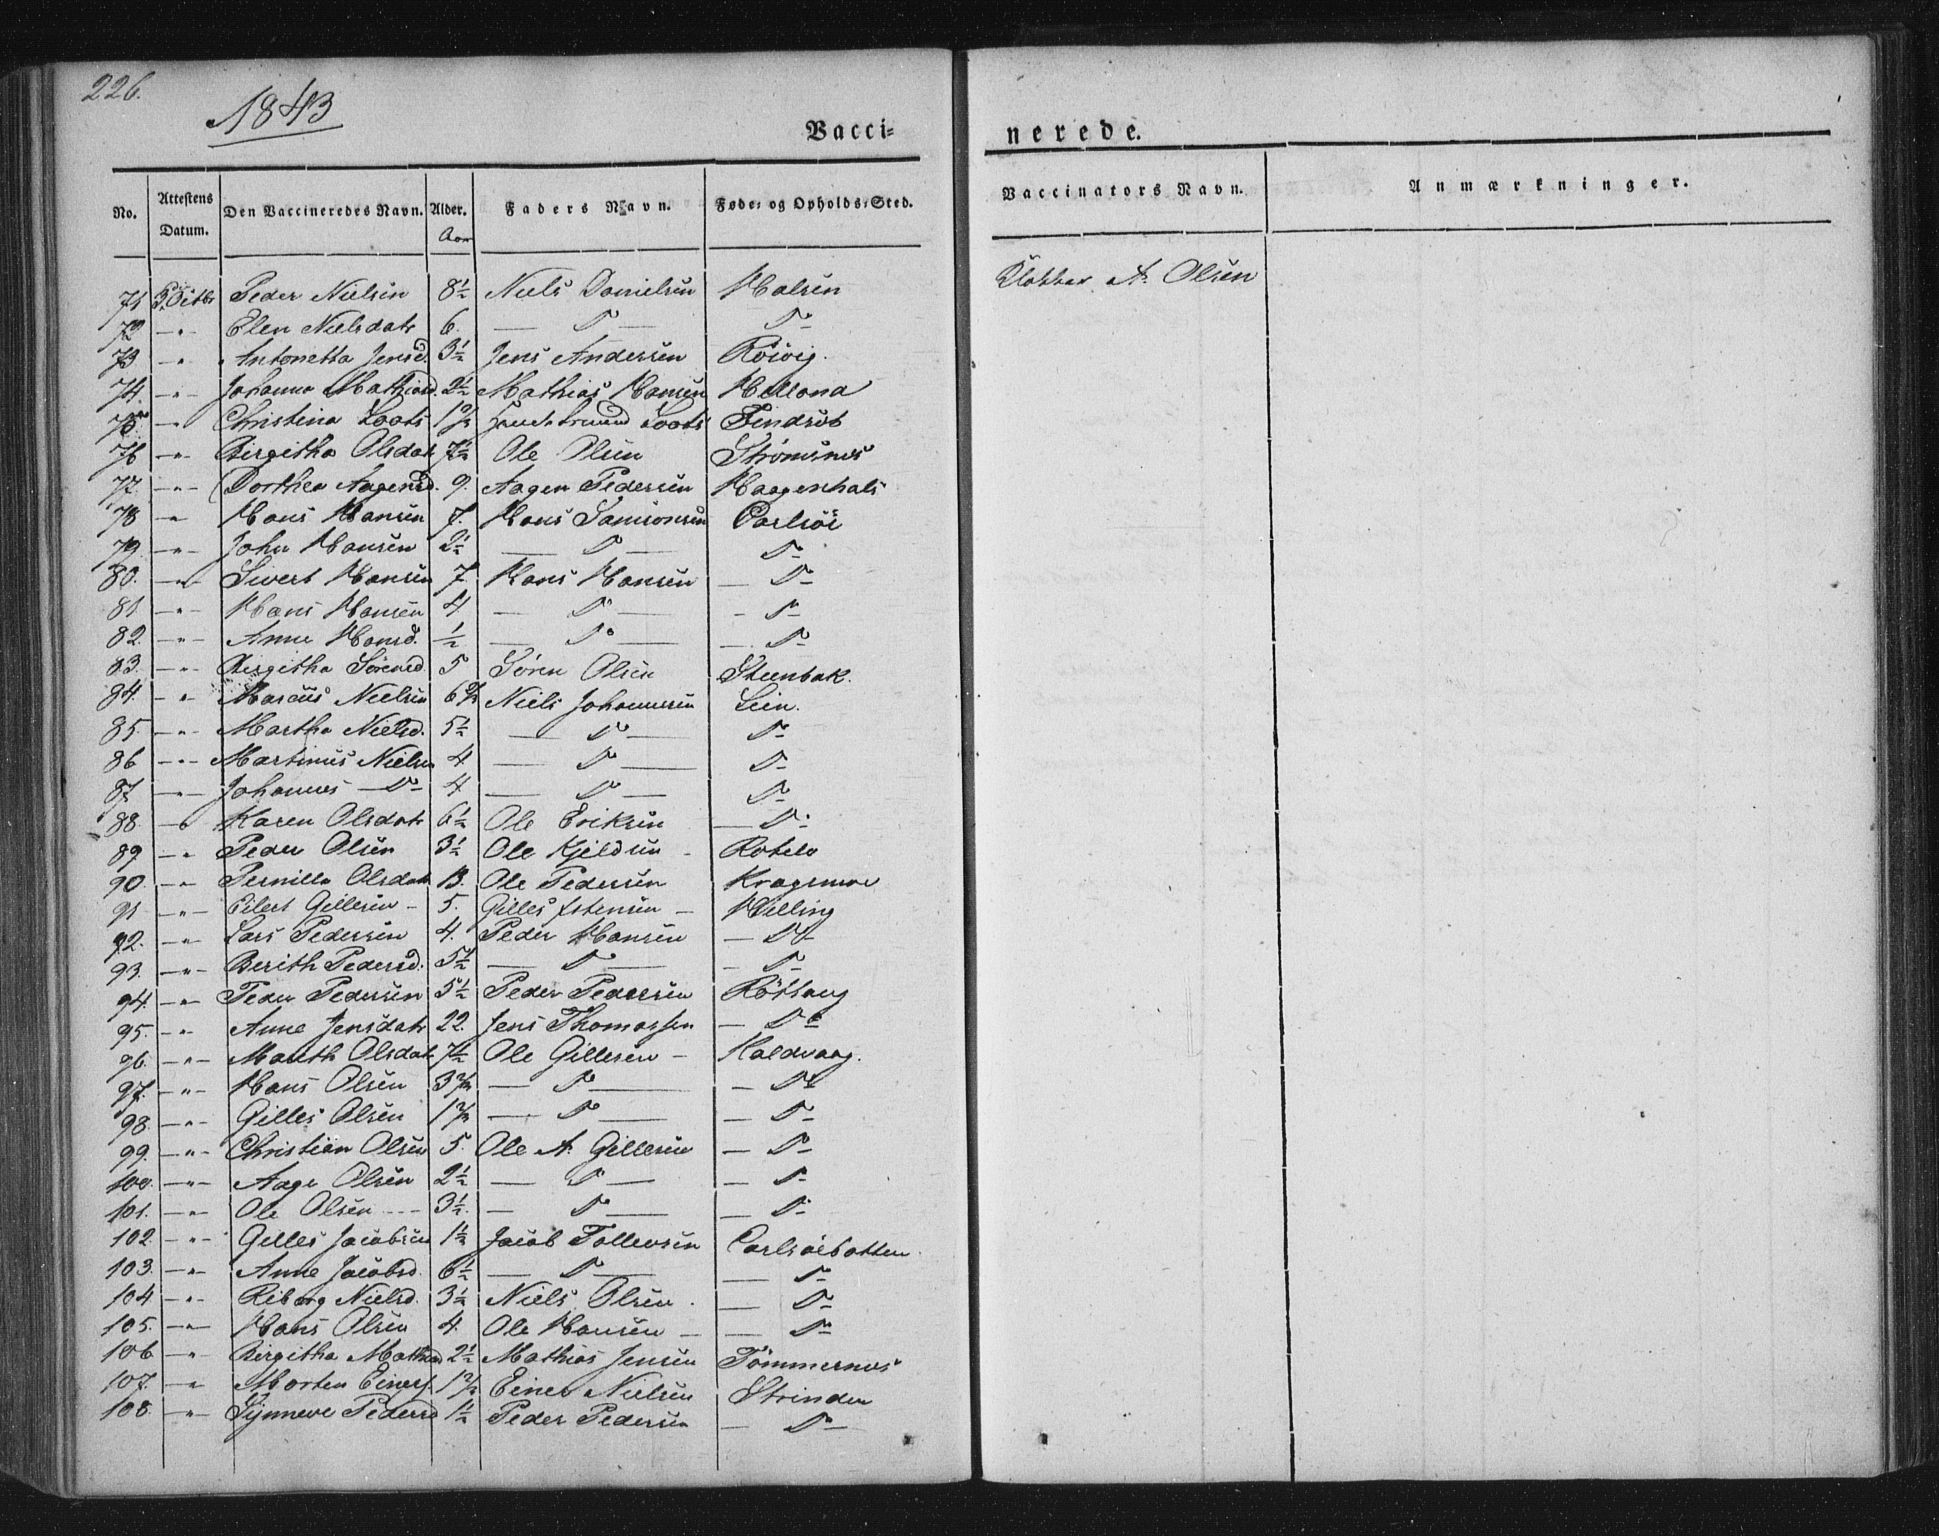 226.
1843
Vacci=
nerede.
No. Attestens Datum. Den Vaccineredes Navn. Alder. Aar Faders Navn. Føde- og Opholds-Sted.
Vaccinators Navn. Anmærkninger.
71 Octbr Peder Nielsen 8½ Niels Danielsen Halsen
Klokker A. Olsen
72 -"- Elen Nielsdatr 6. — D° — D°-
73 -"- Antonetta Jensd. 3½ Jens Andersen Röivig.
74. -"- Johanna Mathiasd. 2½ Mathias Hansen Hellona
75 -"- Christina Loots Loots Findsöb
76 -"- Birgitha Olsdatr 7½ Ole Olsen Strömsnes
77. -"- Dorthea Aagensd. 9. Aagen Pedersen Haagenhals
78 -"- Hans Hansen 7. Hans Samsonsen Carlsöe
79. -"- John Hansen 2½ — D° — D°-
80. -"- Sivert Hansen 7 Hans Hansen — D°-
81. -"- Hans Hansen 4. — D° — - D°-
82. -"- Anne Hansd. ½ — D° — D°-
83. -"- Birgitha Sörensd. 5 Sören Olsen Steenbak.
84. -"- Marcus Nielsen Niels Johannesen Lein.
85. -"- Martha Nielsd. 5½ — D° — D°-
86 -"- Martinus Nielsen 4 — D° — D°-
87. -"- Johannes — D°- 4. — D° — D°-
88. -"- Karen Olsdatr 6½ Ole Eriksen — D°-
89 -"- Peder Olsen 3½ Ole Kjeldsen -
90. -"- Pernille Olsdatr 13. Ole Pedersen Kragsmoe
91 -"- Eilert Gillesen - 5. Gilles Estensen — Helling
92. -"- Lars Pedersen 4. Peder Hansen — D°-
93. -"- Berith Pedersd. 5½ — D° — — D°-
94. -"- Peder Pedersen 5½ Peder Pedersen Röttang
95. -"- Anne Jensdatr 22. Jens Thomassen — D°
96. -"- Mareth Olsdatr 7½ Ole Gillesen — Kaldvaag.
97. -"- Hans Olsen — D° — — D°-
98. -"- Gilles Olsen — D° — — D°-
99. -"- Christian Olsen 5. Ole A. Gillesen — D°-
100. -"- Aage Olsen 2½ — D° — — D°-
101. -"- Ole Olsen - - - 3½. — D° — — D°-
102. -"- Gilles Jacobsen 1½ Jacob Tollevsen Carlsöebotten.
103. -"- Anne Jacobsd. 6½ — D° — — D°-
104 -"- Riborg Nielsd. 3½ Niels Olsen. — D°-
105. -"- Hans Olsen 4. Ole Hansen — — D°-
106 -"- Birgitha Mathiasd 2½ Mathias Jensen Tömmernes
107. -"- Morten Einers. Einer Nielsen Strinden
108. -"- Synneve Pedersd 1½ Peder Pedersen — D°-